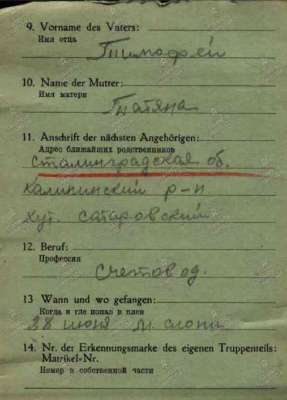 9. Vorname des Vaters:
Имя отца
Тимофей
10. Name der Mutter:
Имя матери
Татяна
11. Anschrift der nächsten Angehörigen:
Адрес ближайших родственников
Сталинградская об.
Калининский р-н
хут. Сатаровский
12. Beruf:
Профессия
Счетовод.
13 Wann und wo gefangen:
Когда и где попал в плен
28 июня
14. Nr. der Erkennungsmarke des eigenen Truppenteils:
Matrikel-Nr.
Номер в собственной части